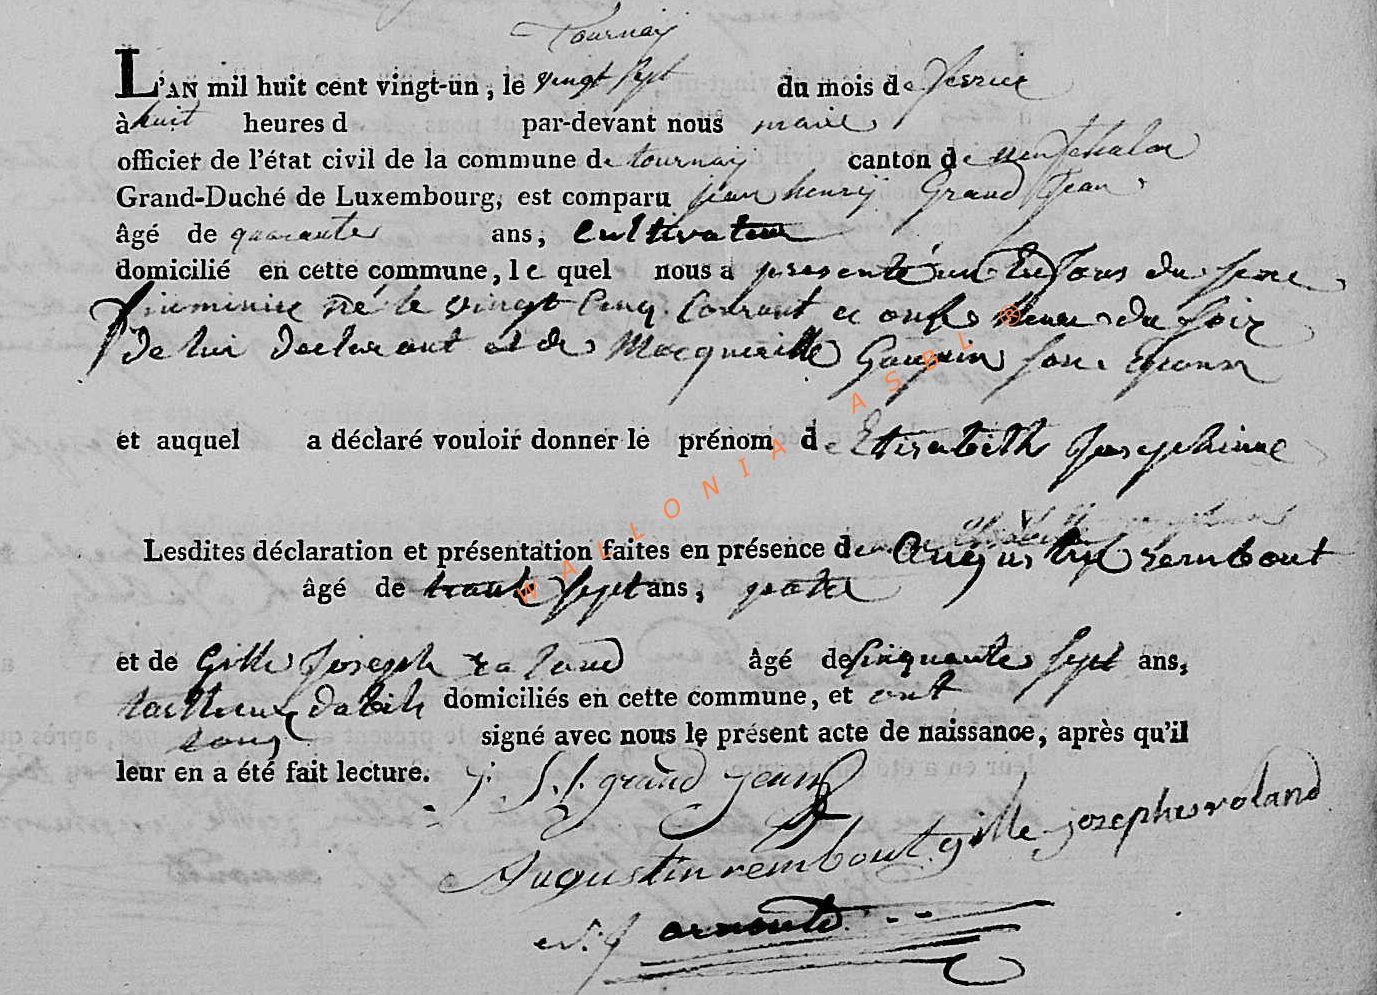 Tournay
L'AN mil huit cent vingt-un, le vingt sept du mois de fevrie
à huit heures d par-devant nous maire
officier de l'état civil de la commune de tournay canton de neufchateau
Grand-Duché de Luxembourg, est comparu jean henry Grand Jean
âgé de quarante ans, Cultivateur
domicilié en cette commune, le quel nous a presenté un Enfans du sexe
feminine né le vingt Cinq Courant a onse heure du soir
de lui declarant et de Margueritte Gaupin son Epouse
et auquel a déclaré vouloir donner le prénom de Elisabeth Josephinne
Lesdites déclaration et présentation faites en présence de Augustin rembout
âgé de trante sept ans,
et de Gille Joseph roland âgé de sinquante sept ans,
tailleur dabits domiciliés en cette commune, et ont
tous signé avec nous le présent acte de naissance, après qu'il
leur en a été fait lecture. j. h. grand jean
Augustin rembout gille josephe roland
arnould
WALLONIA ASBL ®